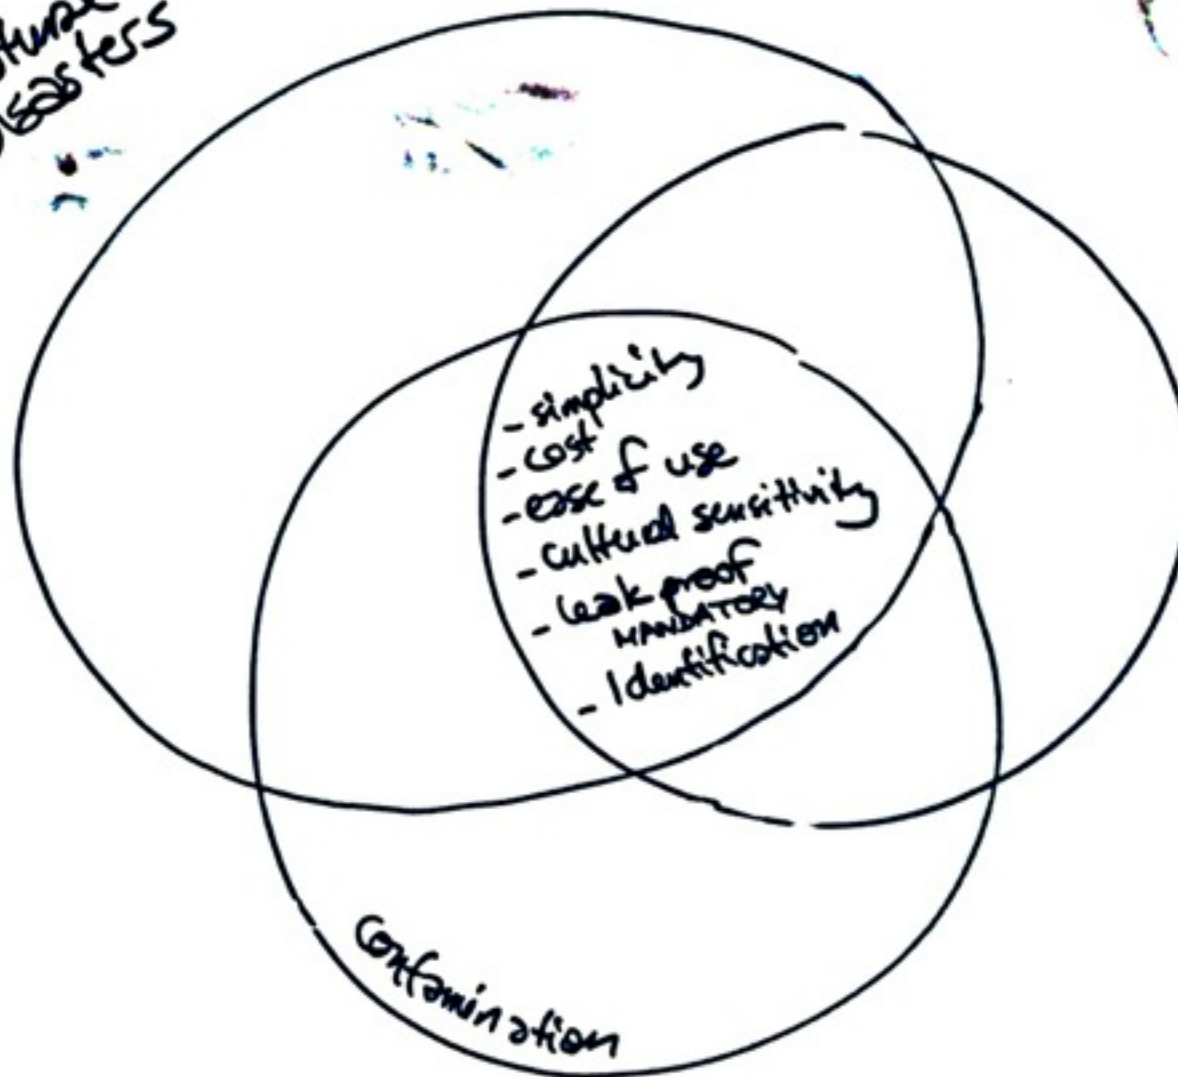 disasters
- simplicity
- cost
- ease of use
- cultural sensitivity
- leak proof
MANDATORY
- Identification
Contamination